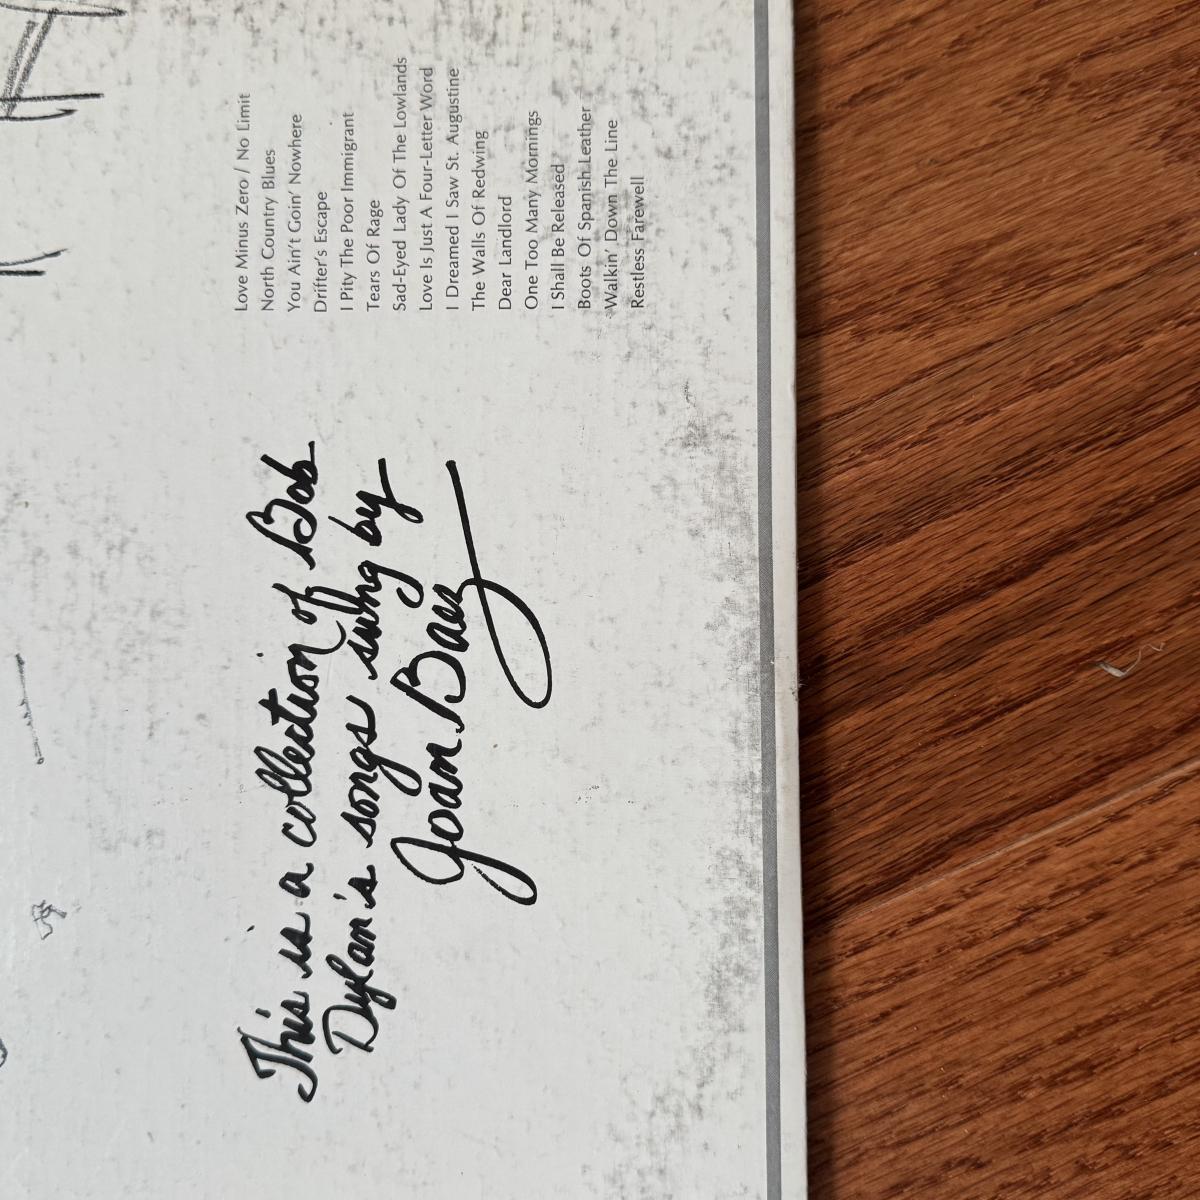 This is a collection of Bob
Dylan's songs sung by
Joan Baez
Love Minus Zero / No Limit
North Country Blues
You Ain't Goin' Nowhere
Drifter's Escape
I Pity The Poor Immigrant
Tears Of Rage
Sad-Eyed Lady Of The Lowlands
Love Is Just A Four-Letter Word
I Dreamed I Saw St. Augustine
The Walls Of Redwing
Dear Landlord
One Too Many Mornings
I Shall Be Released
Boots Of Spanish Leather
Walkin' Down The Line
Restless Farewell